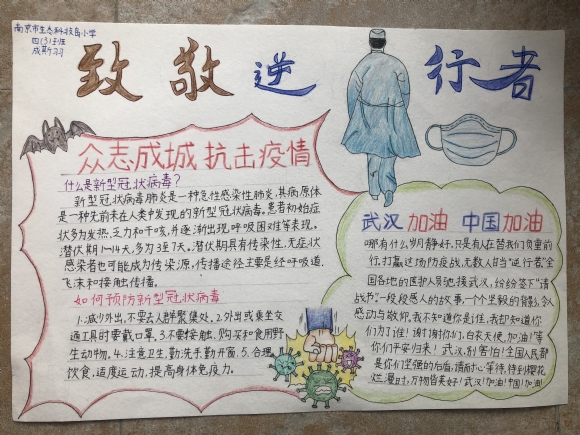 南京市生态科技岛小学
四(3)班
成斯羽
致敬逆行者
众志成城 抗击疫情
什么是新型冠状病毒?
新型冠状病毒肺炎是一种急性感染性肺炎,其病原体
是一种先前未在人类中发现的新型冠状病毒。患者初始症
状多为发热、乏力和干咳,并逐渐出现呼吸困难等表现。
潜伏期1~14天,多为3至7天。潜伏期具有传染性,无症状
感染者也可能成为传染源,传播途径主要是经呼吸道
飞沫和接触传播。
如何预防新型冠状病毒
1.减少外出,不要去人群聚集处。2.外出或乘坐交
通工具时要戴口罩。3.不要接触、购买和食用野
生动物。4.注意卫生,勤洗手勤开窗。5.合理
饮食,适度运动,提高身体免疫力。
武汉加油 中国加油
哪有什么岁月静好,只是有人在替我们负重前
行。打赢这场防疫战,无数人甘当“逆行者”。全
国各地的医护人员驰援武汉,纷纷签下“请
战书”。一段段感人的故事,一个个坚毅的背影,令人
感动与敬仰。我不知道你是谁,我却知道你
们为了谁!谢谢你们,白衣天使,加油!等
你们平安归来!武汉,别害怕!全国人民都
是你们坚强的后盾,请耐心等待,待到樱花
烂漫时,万物皆美好!武汉!加油!中国!加油!